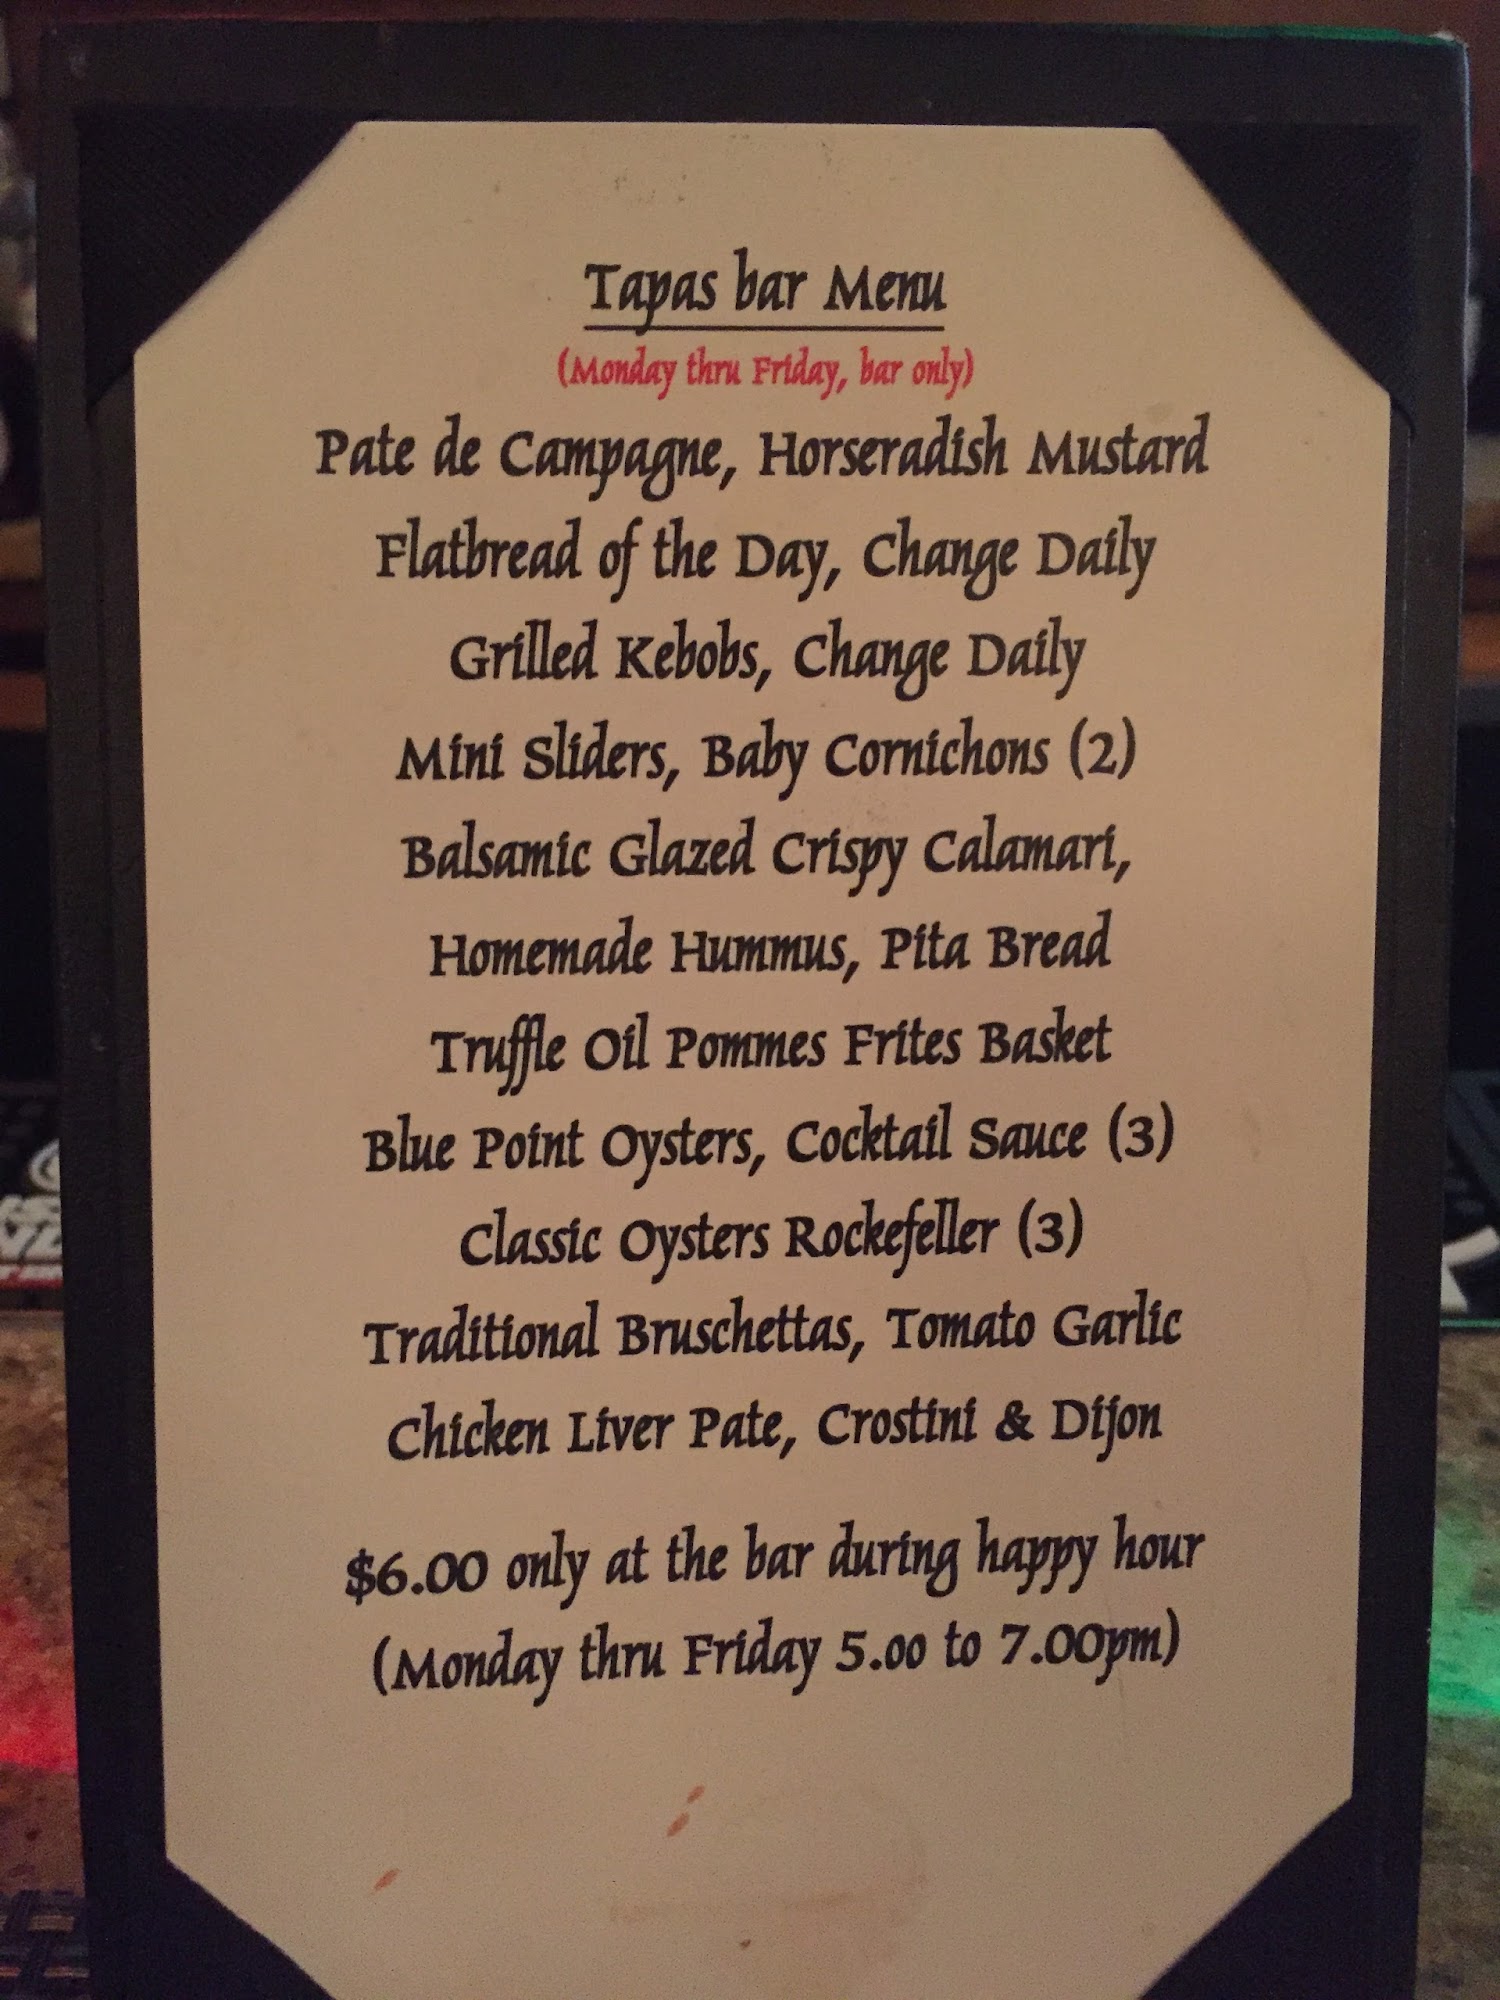 Tapas bar Menu
(Monday thru Friday, bar only)
Pate de Campagne, Horseradish Mustard
Flatbread of the Day, Change Daily
Grilled Kebobs, Change Daily
Mini Sliders, Baby Cornichons (2)
Balsamic Glazed Crispy Calamari,
Homemade Hummus, Pita Bread
Truffle Oil Pommes Frites Basket
Blue Point Oysters, Cocktail Sauce (3)
Classic Oysters Rockefeller (3)
Traditional Bruschettas, Tomato Garlic
Chicken Liver Pate, Crostini & Dijon
$6.00 only at the bar during happy hour
(Monday thru Friday 5.00 to 7.00pm)